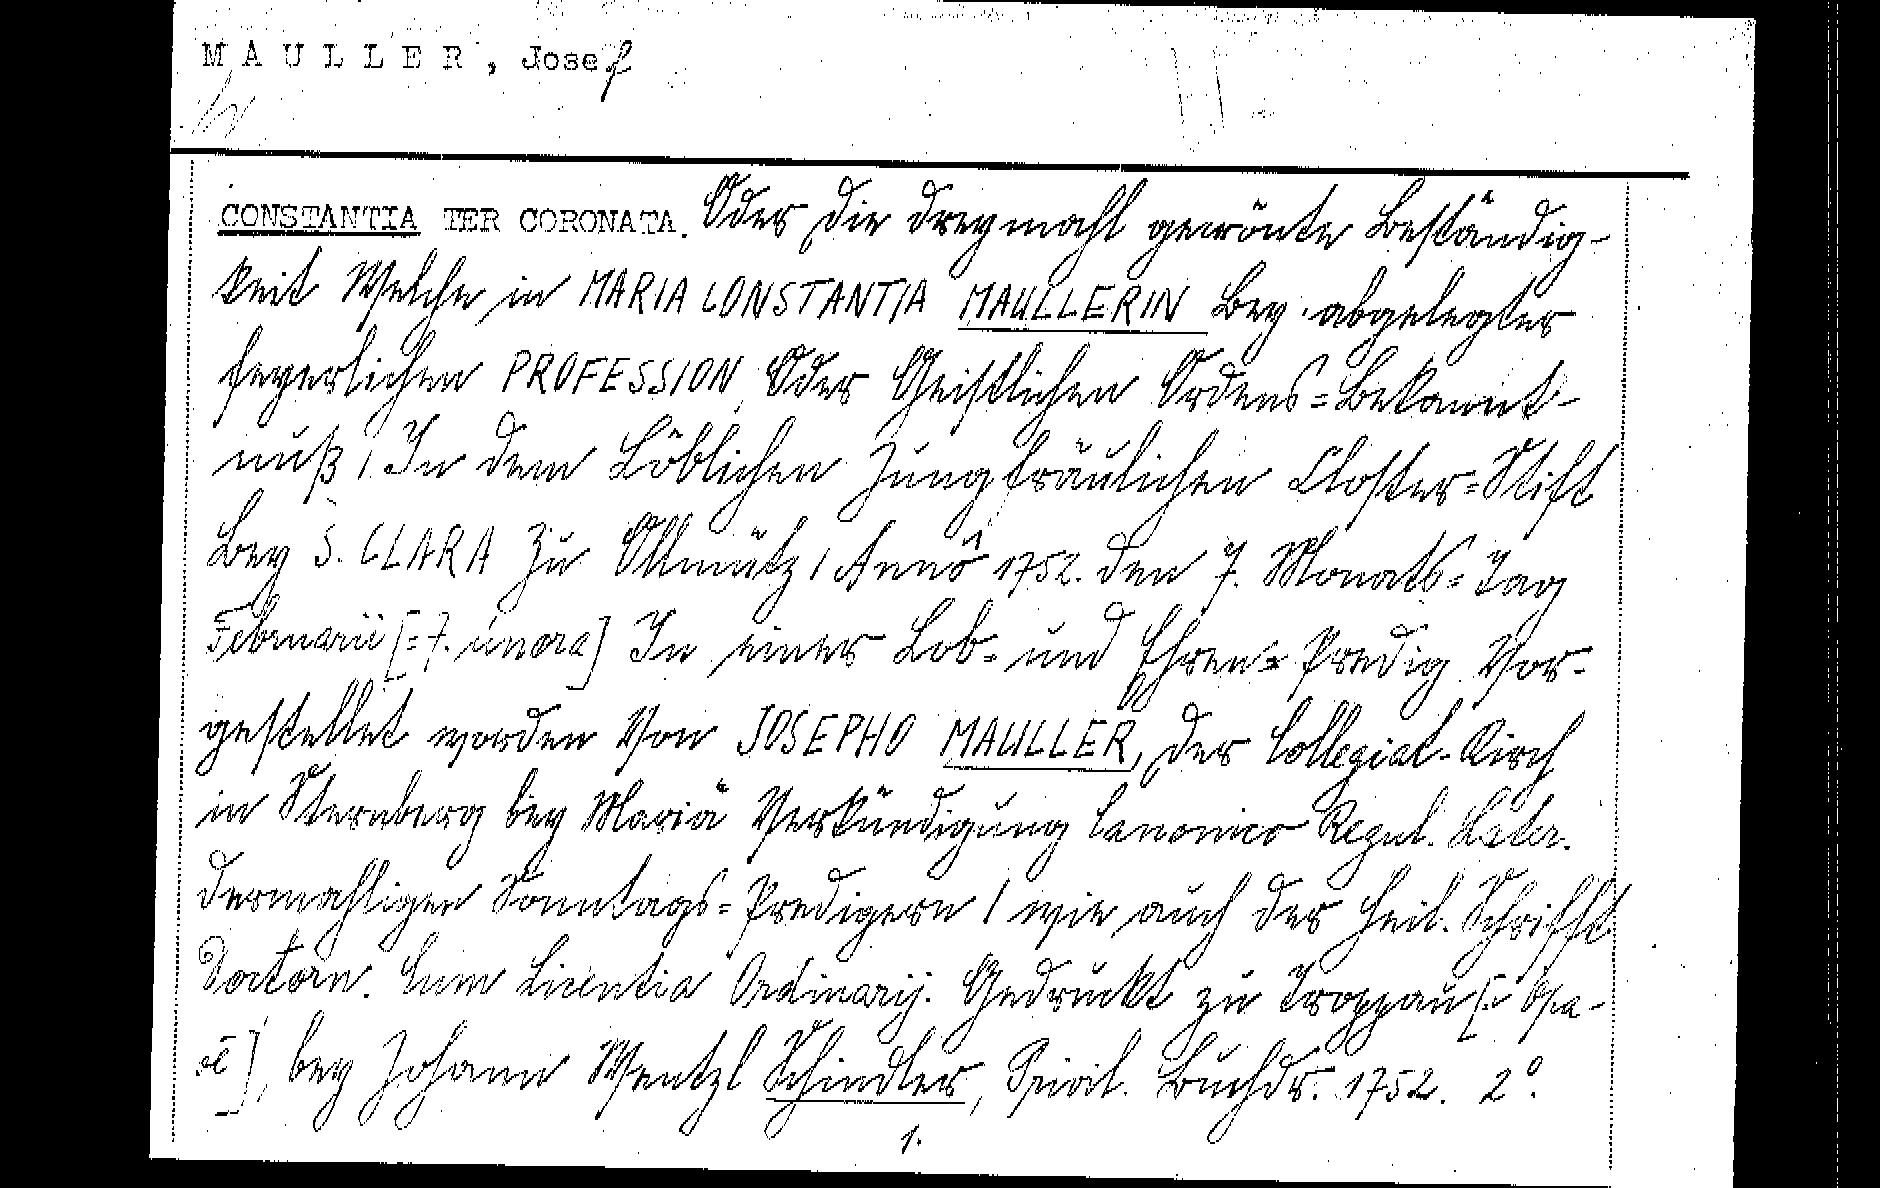 MAULLER, Josef
CONSTANTIA TER CORONATA. Oder die dreymahl gecrönte Beständig-
keit Welche in MARIA CONSTANTIA MAULLERIN Bey abgelegter
feyerlichen PROFESSION Oder Geistlichen Ordens=Bekannt-
nuß / In dem Löblichen Jungfräulichen Closter=Stift
Bey S. CLARA Zu Ollmütz / Anno 1752. den 7. Monats=Tag
Februarii [=7. února] In einer Lob= und Ehren=Predig Vor-
gestellet worden Von JOSEPHO MAULLER, der Collegiat-Kirch
in Sternberg bey Mariä Verkündigung Canonico Regul. Later.
dermahligen Sonntags=Predigern / wie auch der Heil. Schrifft
Doctorn. Cum Licentia Ordinarij. Gedruckt zu Troppau [= Opa-
vě], bey Johann Wentzl Schindler, Privil. Buchdr. 1752. 2°.
1.